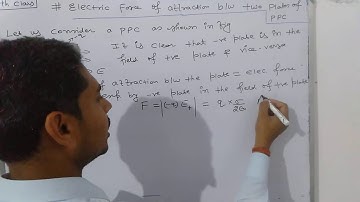 th class) # Electric Force of attraction b/w two Plates of PPC
Let us consider a PPC as shown in fig
It is clear that -ve plate is in the
field of +ve plate & vice-versa
of attraction b/w the plate = elec. force
by -ve plate in the field of +ve plate
F = |(-q) E₊| = q × σ/2ε₀